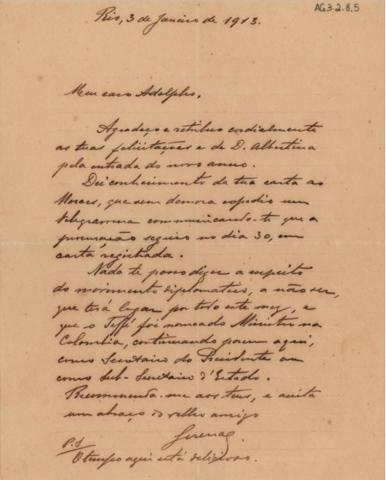 AG.3.2.8.5
Rio, 3 de Janeiro de 1913.
Meu caro Adolpho,
Agradeço e retribuo cordialmente
as tuas felicitações e de D. Albertina
pela entrada do novo anno.
Dei conhecimento da tua carta ao
Moraes, que sem demora expedio um
telegramma communicando-te que a
procuração seguio no dia 30, em
carta registrada.
Nada te posso dizer a respeito
do movimento diplomatico, a não ser,
que terá lugar por todo este mez, e
que o Teffé foi nomeado Ministro na
Colombia, continuando porem aqui,
como Secretario do Presidente ou
como Sub-Secretario d'Estado.
Recommenda-me aos teus, e aceita
um abraço do velho amigo
P.S.
O tempo aqui está delicioso.